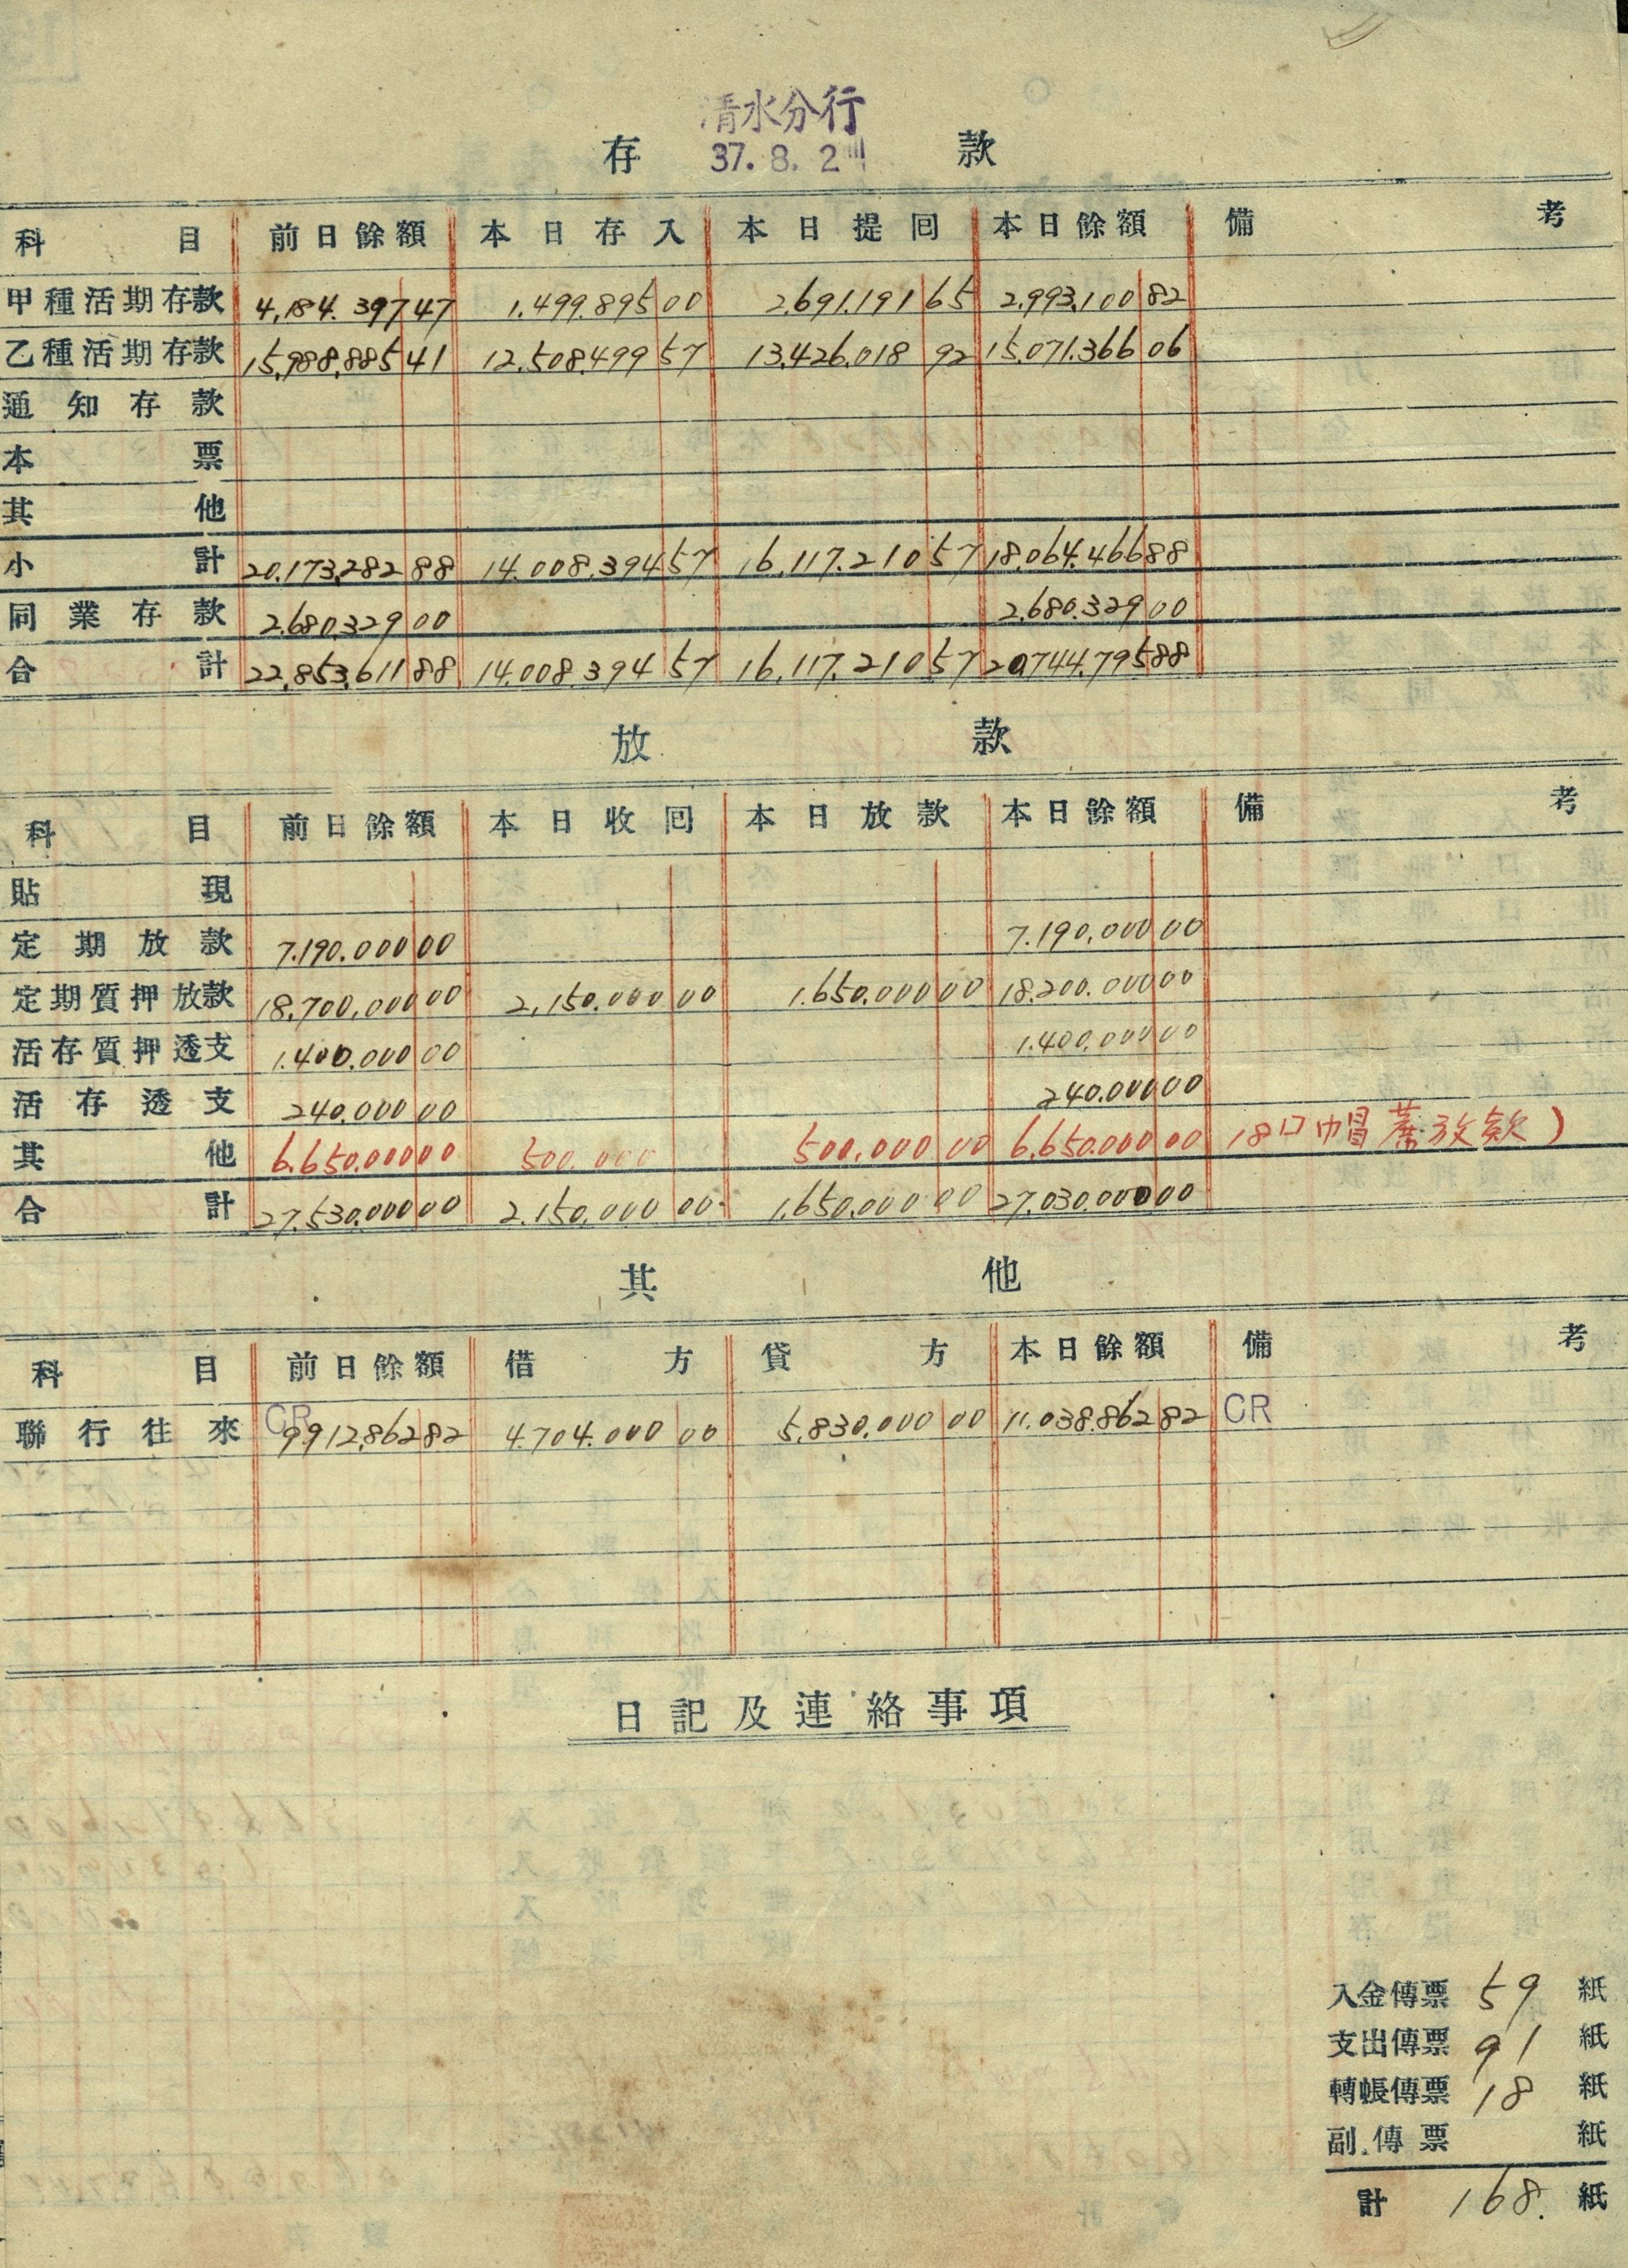 清水分行
存 款
37. 8. 2
科目 前日餘額 本日存入 本日提回 本日餘額 備考
甲種活期存款 4,184.397 47 1.499.895 00 2.691.191 65 2.993.100 82
乙種活期存款 15,988,885 41 12,508,499 57 13,426,018 92 15,071,366 06
通知存款
本票
其他
小計 20,173,282 88 14.008.394 57 16.117.210 57 18.064.466 88
同業存款 2,680,329 00 2,680,329 00
合計 22,853,611 88 14,008,394 57 16,117,210 57 20,744,795 88
放 款
科目 前日餘額 本日收回 本日放款 本日餘額 備考
貼現
定期放款 7.190.000 00 7.190.000 00
定期質押放款 18,700,000 00 2,150.000 00 1.650.000 00 18.200.000 00
活存質押透支 1.400.000 00 1.400.000 00
活存透支 240.000 00 240.000 00
其他 6.650.000 00 500.000 500.000 00 6.650.000 00 18口帽蓆放款)
合計 27.530.000 00 2.150.000 00 1.650.000 00 27.030.000 00
其 他
科目 前日餘額 借方 貸方 本日餘額 備考
聯行往來 CR 9,912,862 82 4.704.000 00 5.830.000 00 11.038.862 82 CR
日記及連絡事項
入金傳票 59 紙
支出傳票 91 紙
轉帳傳票 18 紙
副傳票 紙
計 168. 紙